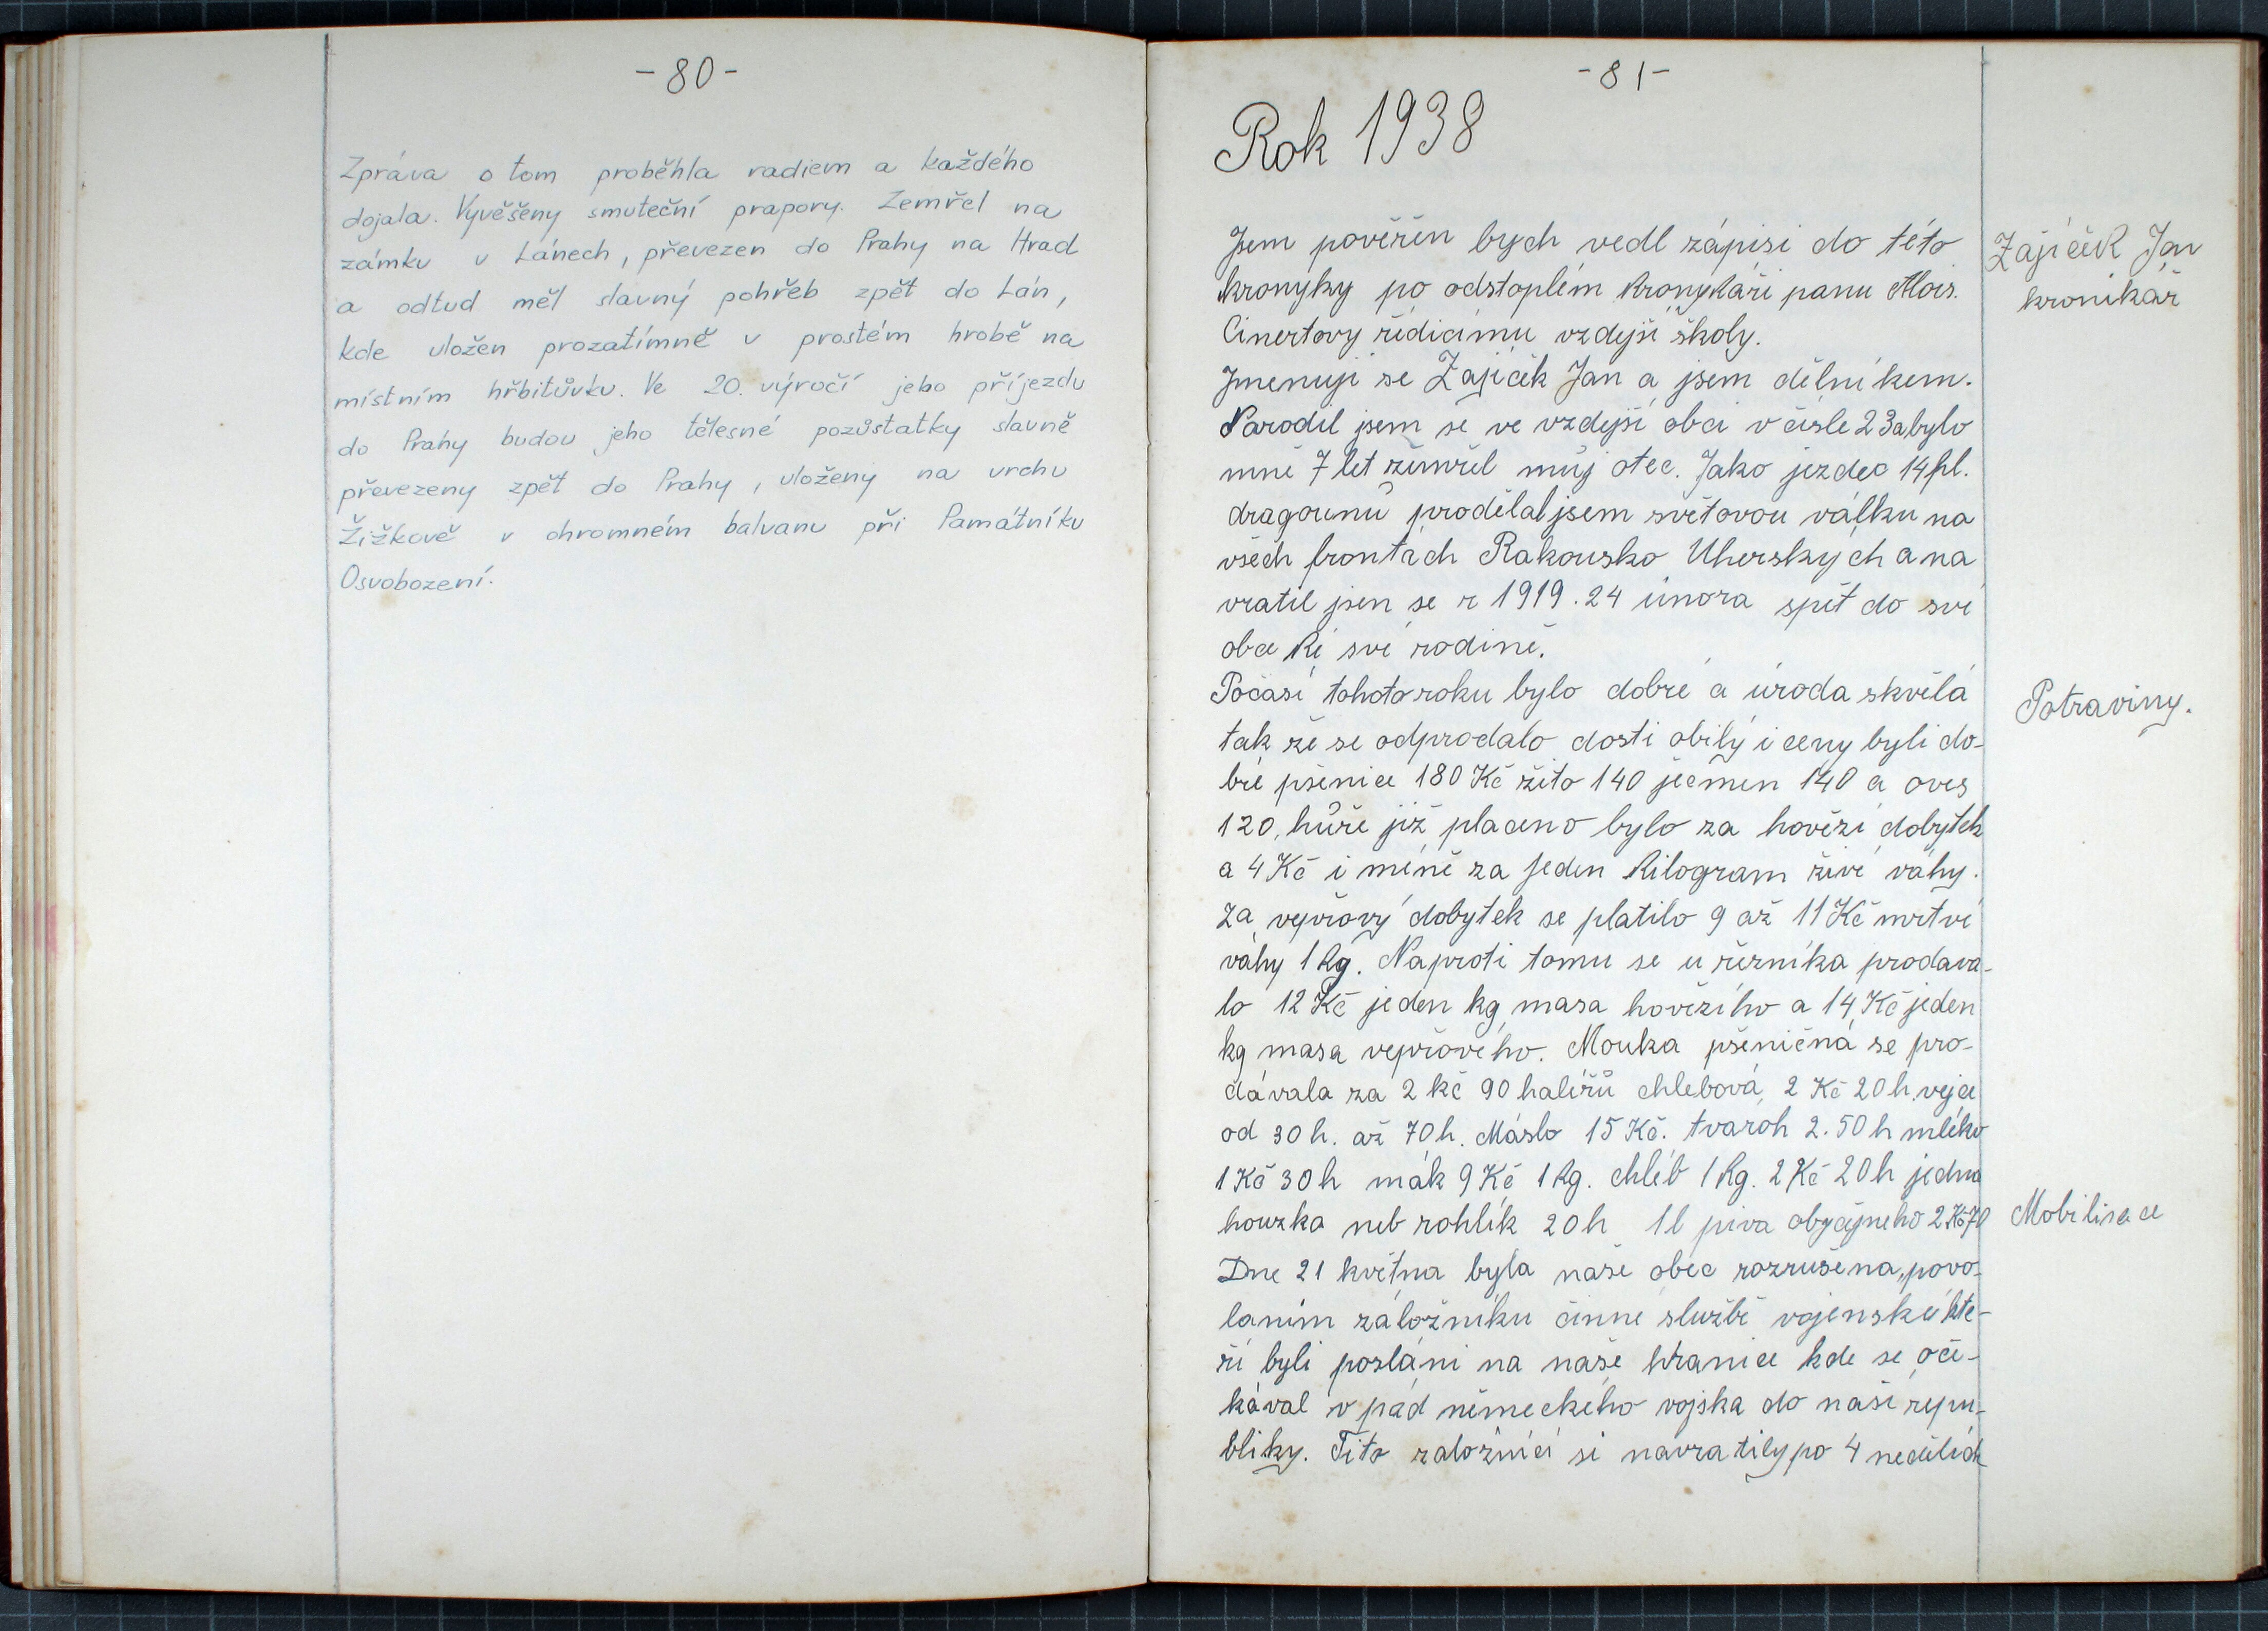 -80-
Zpráva o tom proběhla radiem a každého
dojala. Vyvěšeny smuteční prapory. Zemřel na
zámku v Lánech, převezen do Prahy na Hrad
a odtud měl slavný pohřeb zpět do Lán,
kde uložen prozatímně v prostém hrobě na
místním hřbitůvku. Ve 20. výročí jeho příjezdu
do Prahy budou jeho tělesné pozůstatky slavně
převezeny zpět do Prahy, uloženy na vrchu
Žižkově v ohromném balvanu při Památníku
Osvobození.
-81-
Rok 1938
Jsem pověřen bych vedl zápisi do této
kronyky po odstoplém kronykáři panu Alois.
Cinertovy řídicímu vzdejší školy.
Jmenuji se Zajíček Jan a jsem dělníkem.
Narodil jsem se ve vzdejší obci v čísle 23 a bylo
mně 7 let zěmřel můj otec. Jako jezdec 14 pl.
dragounů prodělal jsem světovou válku na
všech frontách Rakousko Uherských a na
vrátil jsen se r 1919. 24 února spět do své
obce ké své rodině.
Počasí tohoto roku bylo dobré a úroda skvělá
tak že se odprodalo dosti obilý i ceny byli do-
bré pšenice 180 Kč žito 140 ječmen 140 a oves
120, hůře již placeno bylo za hovězí dobytek
a 4 Kč i méně za jeden kilogram živé váhy.
Za vepřový dobytek se platilo 9 až 11 Kč mrtvé
váhy 1 kg. Naproti tomu se u řezníka prodáva-
lo 12 Kč jeden kg masa hovězího a 14 Kč jeden
kg masa vepřového. Mouka pšeničná se pro-
dávala za 2 kč 90 haléřů chlebová 2 Kč 20 h. vejce
od 30 h. až 70 h. Máslo 15 Kč. tvaroh 2.50 h mléko
1 Kč 30 h mák 9 Kč 1 kg. chléb 1 kg. 2 Kč 20 h jedna
houzka neb rohlík 20 h 1 l piva obyčejneho 2 Kč 70
Dne 21 května byla naše obec rozrušena, povo-
láním záložníku činné službě vojenské kte-
ří byli posláni na naše hranice kde se oče-
kával v pád německého vojska do naší repu-
bliky. Tito záložníci si navratily po 4 nedělích
Zajíček Jan
kronikář
Potraviny.
Mobilisace